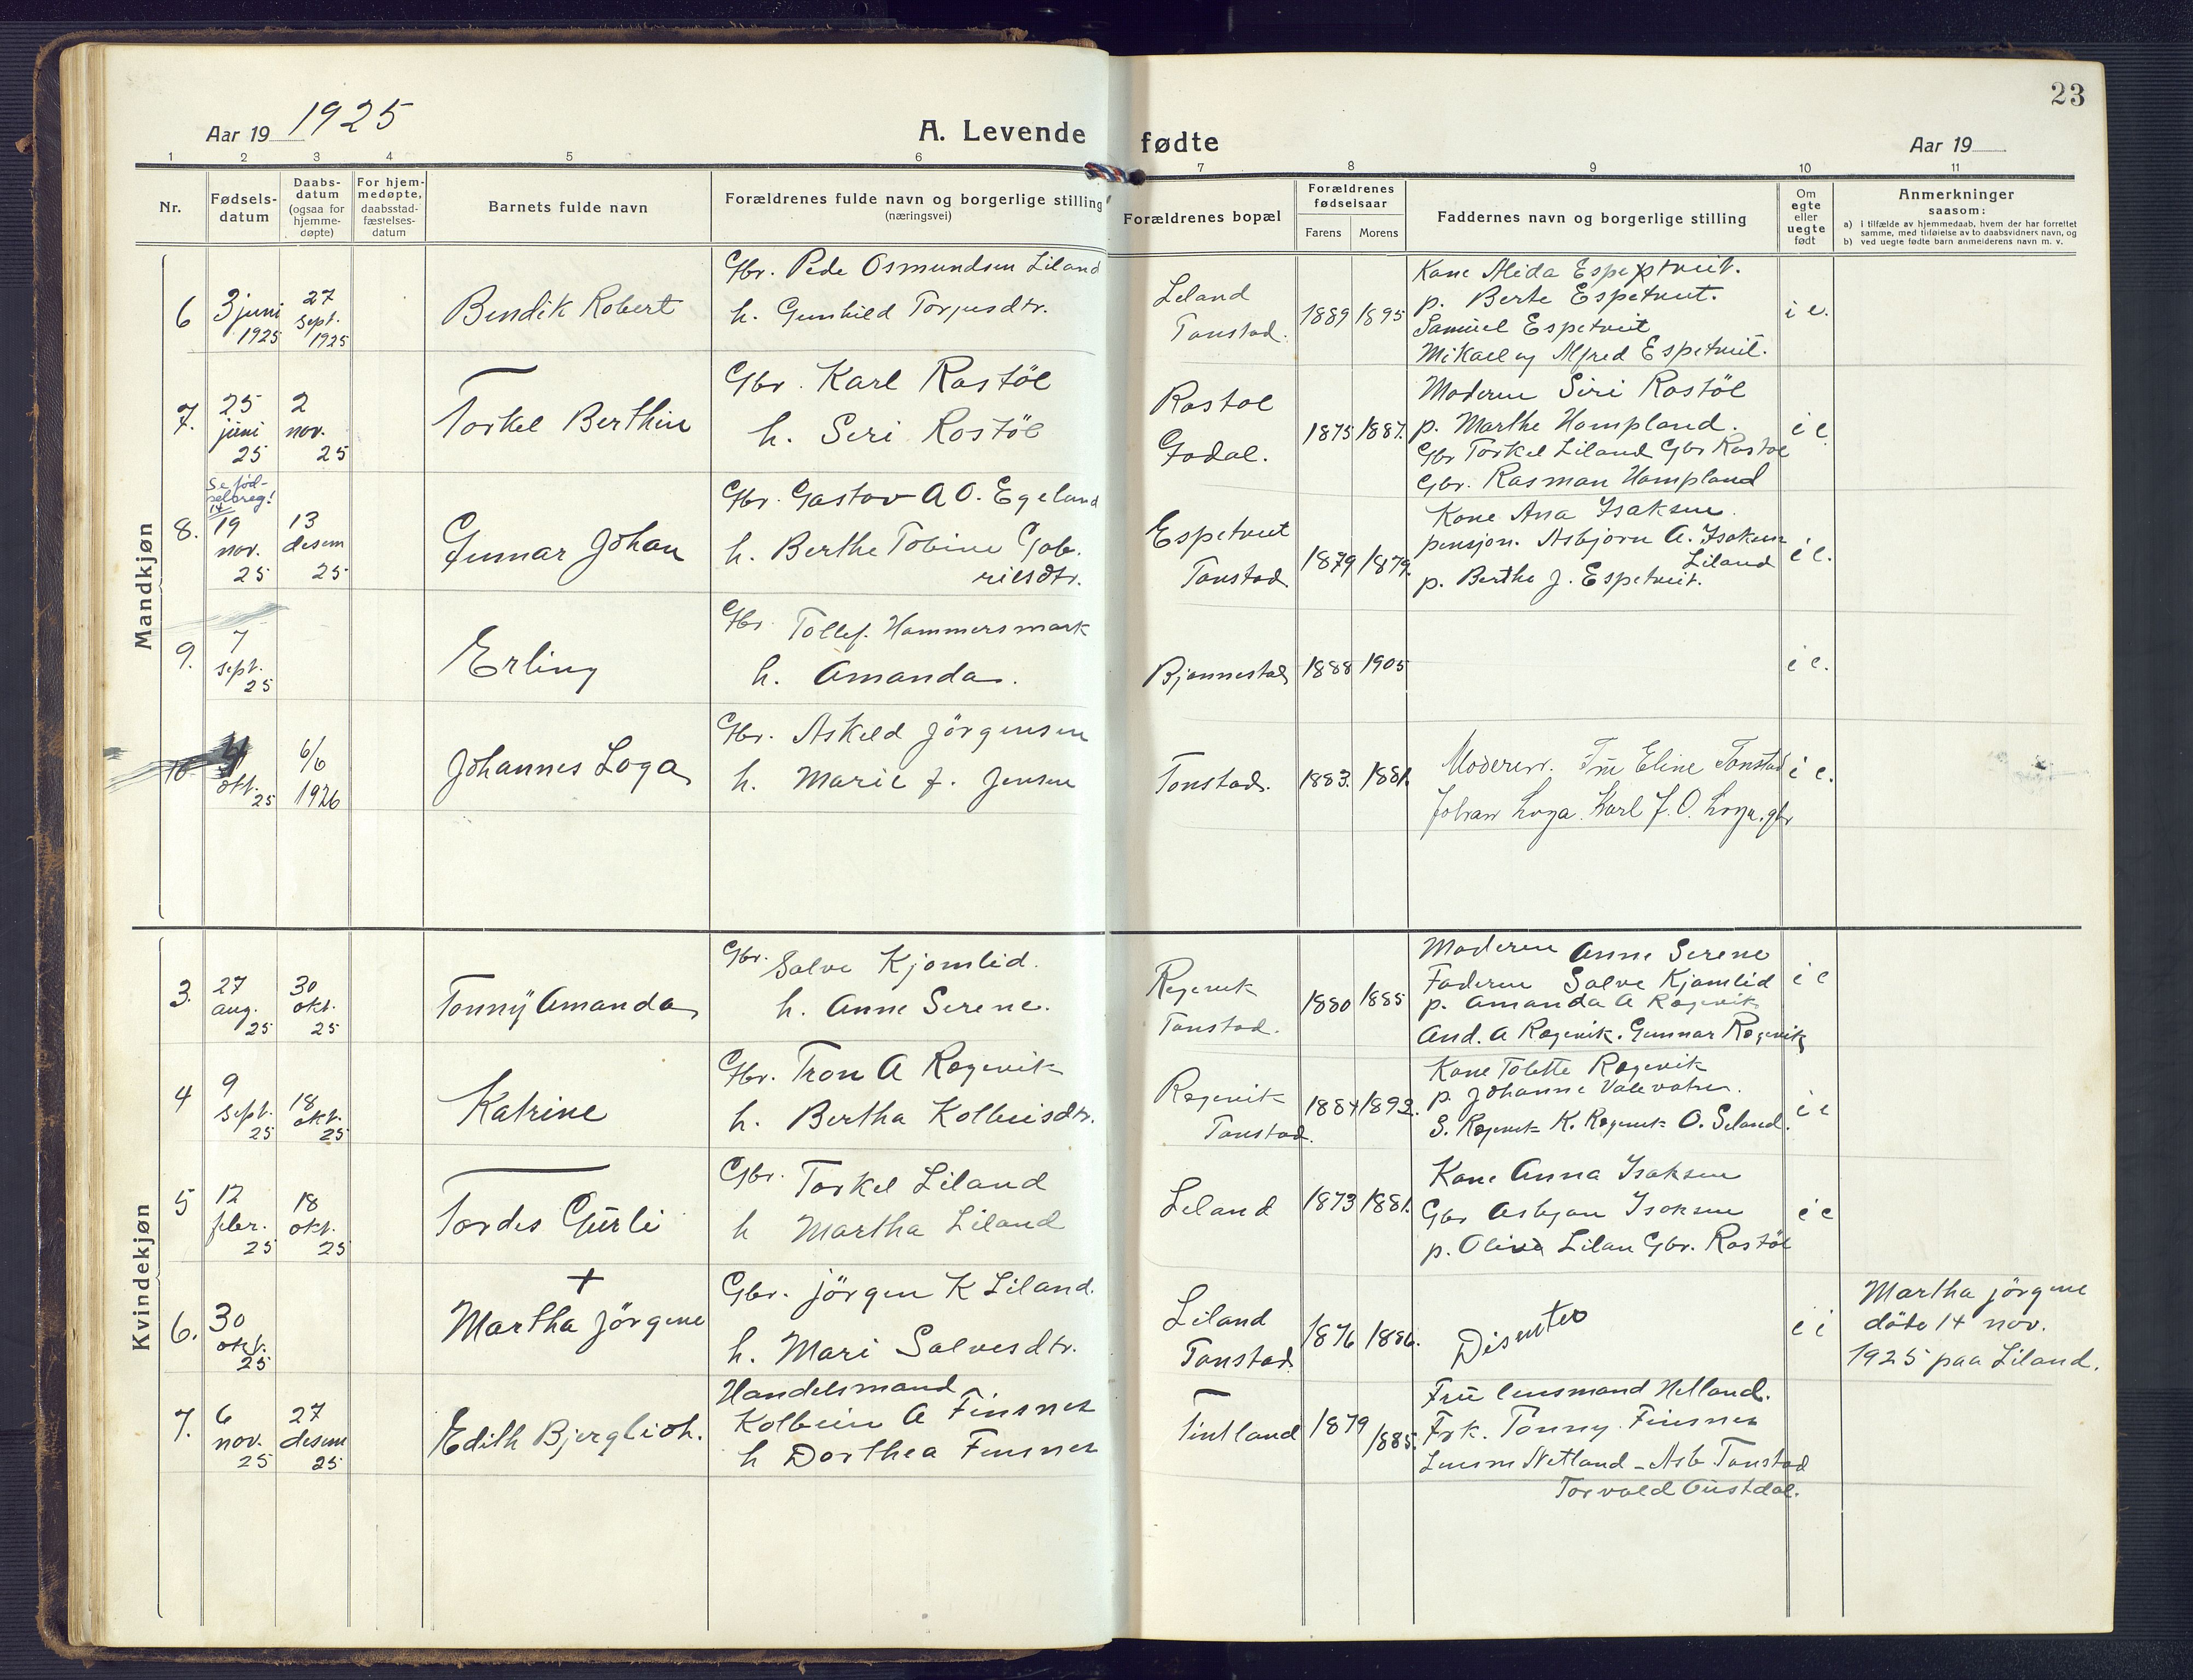 23
Aar 19 1925
A. Levende fødte
Aar 19
1 2 3 4 5 6 7 8 9 10 11
Nr.
Fødsels-
datum
Daabs-
datum
(ogsaa for
hjemme-
døpte)
For hjem-
medøpte,
daabsstad-
fæstelses-
datum
Barnets fulde navn
Forældrenes fulde navn og borgerlige stilling
(næringsvei)
Forældrenes bopæl
Forældrenes
fødselsaar
Farens Morens
Faddernes navn og borgerlige stilling
Om
egte
eller
uegte
født
Anmerkninger
saasom:
a) i tilfælde av hjemmedaab, hvem der har forrettet
samme, med tilføielse av to daabsvidners navn, og
b) ved uegte fødte barn anmelderens navn m. v.
Mandkjøn
6
3 juni
1925
27
Sept.
1925
Bendik Robert
Gbr. Pede Osmundsen Liland
h. Gunhild Torjusdtr.
Liland
Tonstad.
1889 1895
Kone Alida Espetveit.
p. Berte Espetveit.
Samuel Espetveit
Mikael og Alfred Espetveit.
i e.
7.
25
juni
25
2
nov.
25
Torkel Berthin
Gbr. Karl Rostöl
h. Seri Rostöl
Rostöl
Godal.
1875 1887.
Moderen Siri Rostöl
p. Marthe Hompland.
Gbr Torkel Liland Gbr Rostöl
Gbr. Rasman Hompland
i e.
Se fød-
selsreg!
14
8.
19
nov.
25
13
desem
25
Gunnar Johan
Gbr. Gastav A O. Egeland
h. Berthe Tobine Gab.
rielsdtr.
Espetveit
Tonstad
1879 1879.
Kone Ana Isaksen.
pensjon. Asbjørn A. Isaksen
Liland
p. Berthe J. Espetveit.
i e.
9.
7
sept.
25
Erling
Gbr. Tollef. Hammersmark
h. Amanda.
Bjønnestad
1888 1905
i e.
10
4
okt.
25
6/6
1926
Johannes Loga
Gbr. Askild Jörgensen
h. Marie J. Jensen
Tonstad.
1883. 1881.
Moderen. Frü Eline Tonstad
Johan Loga. Karl J. O. Loga. gbr
i e.
Kvindekjøn
3.
27
aug.
25
30
okt.
25
Tonny Amanda
Gbr. Salve Kjomlid.
h. Anne Serene.
Regevik
Tonstad.
1880 1885
Moderen Anne Serene
Faderen Salve Kjomlid
p. Amanda A Regevik
And. A Regevik. Gunnar Regevik
i e
4
9
Sept.
25
18
okt.
25
Katrine
Gbr. Tron A Regevik
h. Bertha Kolbeisdtr.
Regevik
Tonstad.
1884 1892.
Kone Tolette Regevik
p. Johanne Valevatn.
S. Regevik K. Regevik O. Seland.
i e
5
12
febr.
25
18
okt.
25
Tordis Gürli
Gbr. Torkel Liland
h Martha Liland
Liland
1873 1881.
Kone Anna Isaksen
Gbr Asbjøn Isaksen
p. Olive Lilan Gbr. Rostöl
i e
6.
30
okt.
25
+
Martha Jörgine
Gbr. Jörgen K Liland.
h. Mari Salvesdtr.
Liland
Tonstad
1876 1886.
Disenter
i e
Martha Jörgine
döde 14 nov.
1925 paa Liland.
7.
6
nov.
25
27
desem
25
Edith Bjerglioth.
Handelsmand
Kolbein A Finsnes
h Dorthea Finsnes
Tintland
1879 1885.
Frü lensmand Netland.
Frk. Tonny Finsnes
Lensm Netland - Asb Tonstad
Torvald Oüstdal.